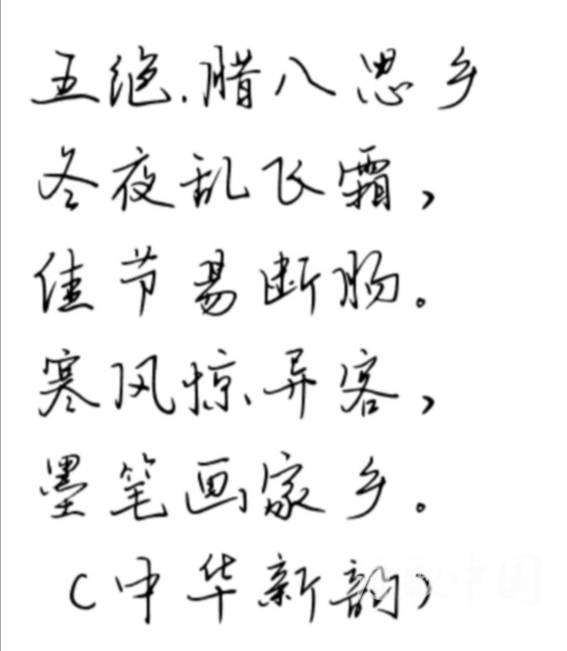 五绝.腊八思乡
冬夜乱飞霜，
佳节易断肠。
寒风惊异客，
墨笔画家乡。
（中华新韵）